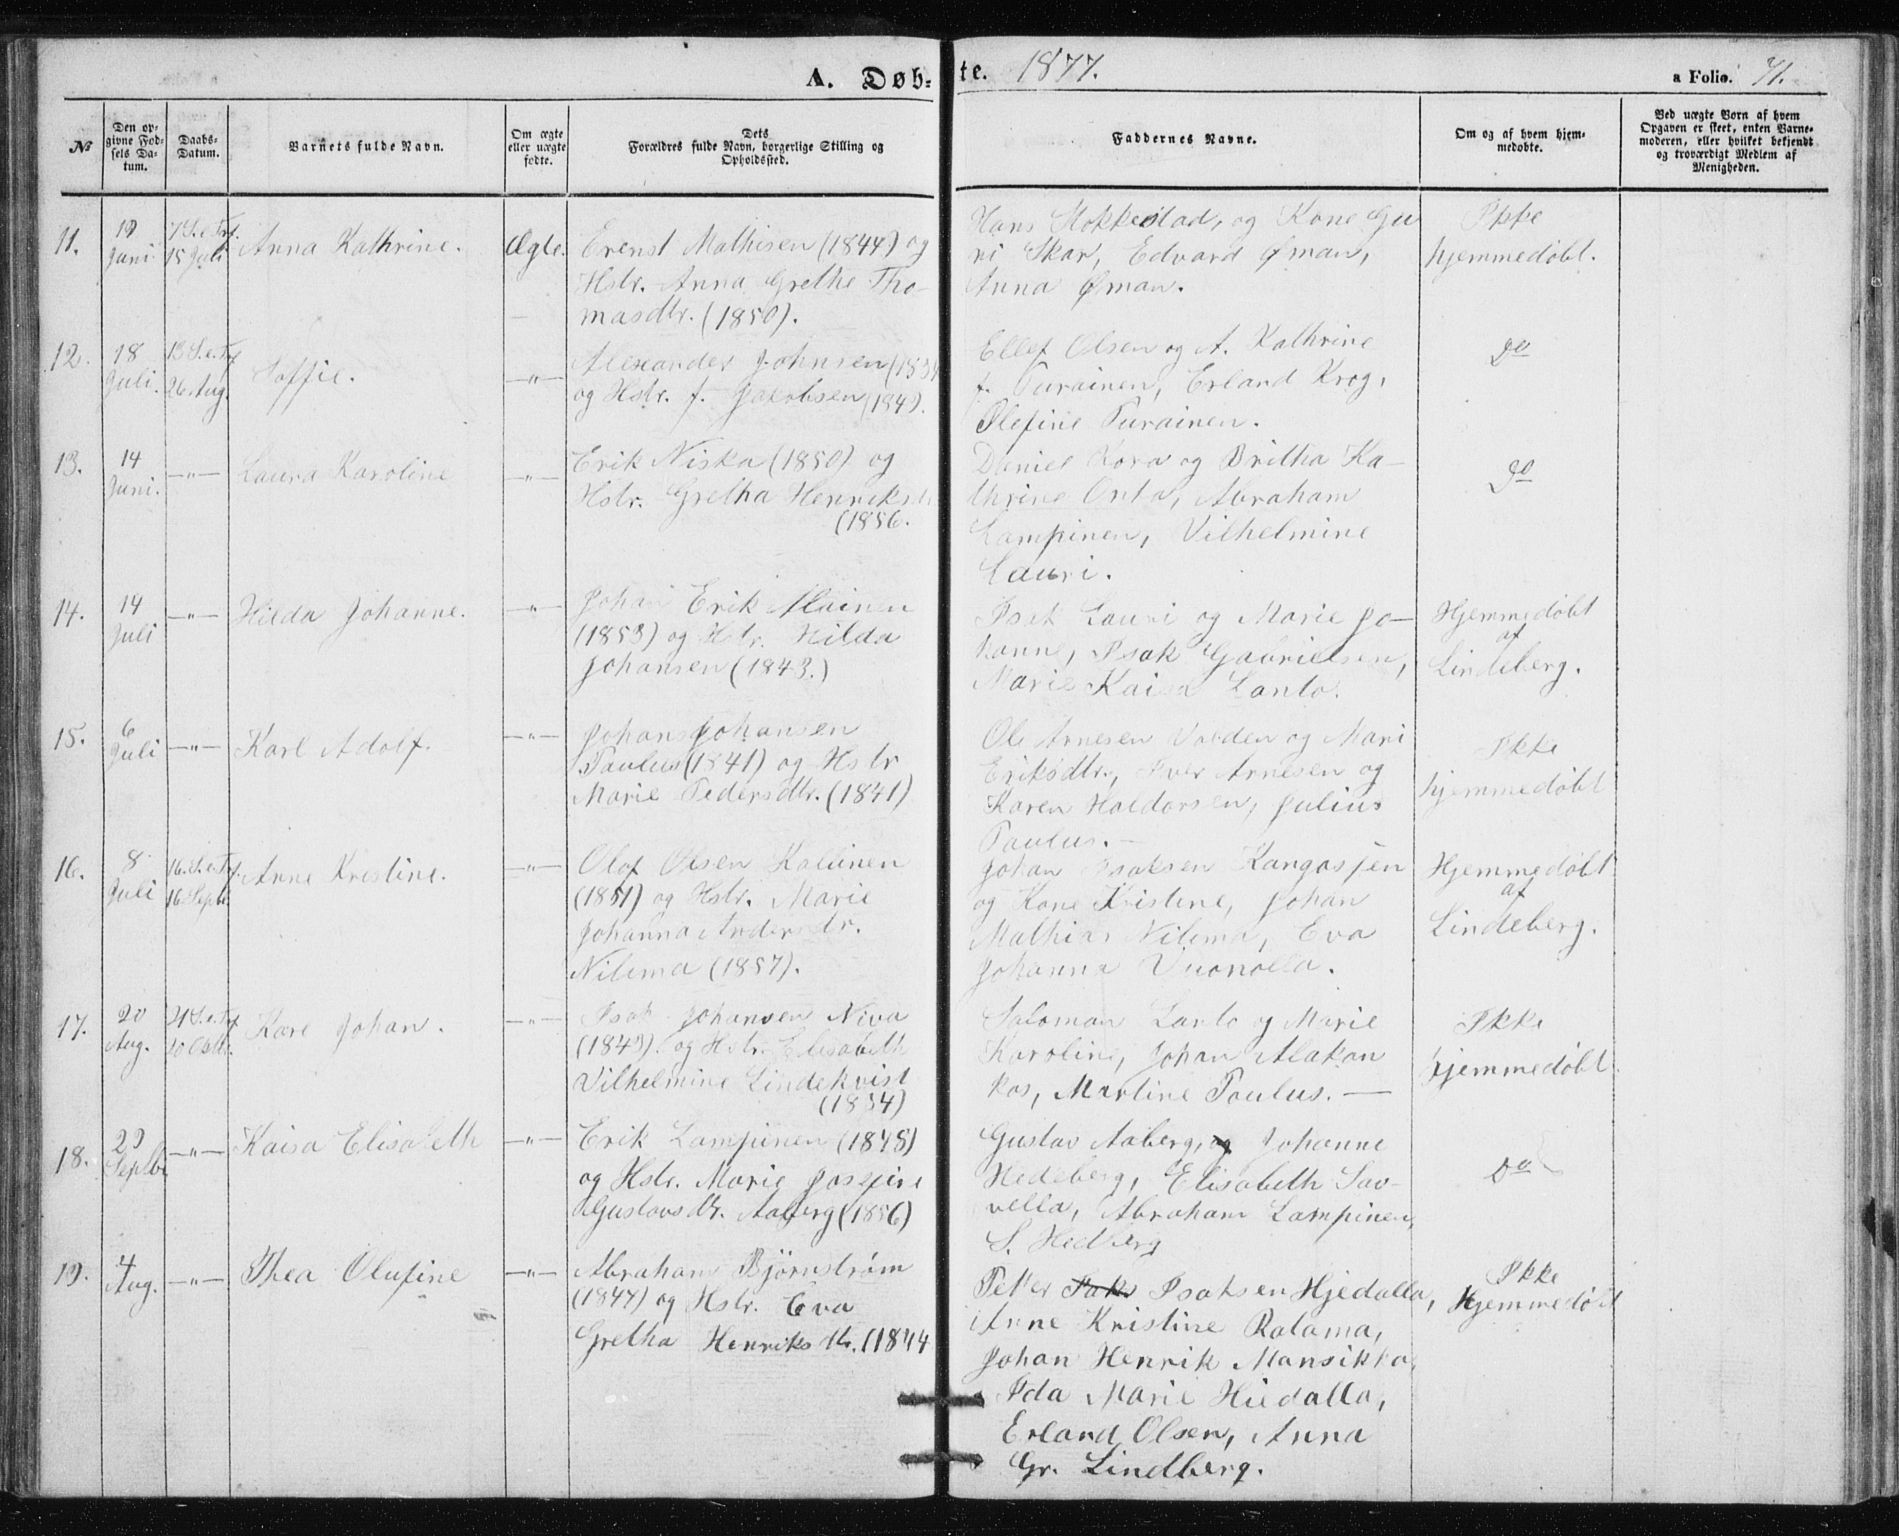 A. Døb-
te. 1877.
a Folio. 71.
№
Den op-
givne Fød-
sels Da-
tum.
Daabs-
Datum.
Barnets fulde Navn.
Om ægte
eller uægte
fødte.
Dets
Forældres fulde Navn, borgerlige Stilling og
Opholdssted.
Faddernes Navne.
Om og af hvem hjem-
medøbte.
Ved uægte Børn af hvem
Opgaven er skeet, enten Barne-
moderen, eller hvilket bekjendt
og troværdigt Medlem af
Menigheden.
11.
Juni
7 S. e. Trf.
15 Juli
Anna Kathrine.
Ægte.
Erenst Mathisen (1844) og
Hstr. Anna Grethe Tho-
masdtr. (1850).
Hans Stokkestad, og Kone Gu
ri Skar, Edvard Øman,
Anna Øman.
Ikke
hjemmedøbt.
12.
18
Juli.
13 S. e. Trf
26 Aug.
Soffie.
-"-
Alexander Johnsen
og Hstr. f. Jakobsen (1849.
Ellef Olsen og A. Kathrine
f. Purainen, Erland Krog,
Olefine Purainen.
do
13.
14
Juni.
-"-
Laura Karoline
-"-
Erik Niska (1850) og
Hstr. Gretha Henriks
(1856.
Daniel Kora og Britha Ka-
thrine Onta, Abraham
Lampinen, Vilhelmine
Lauri.
do
14.
14
Juli
-"-
Hilda Johanne.
-"-
Johan Erik Alainen
(1853) og Hstr. Hilda
Johansen (1843.)
Isak Lauri og Marie Jo-
hanne, Isak Gabrielsen,
Marie Kaisa Lanto.
Hjemmedøbt
af
Lindeberg.
15.
6
Juli
-"-
Karl Adolf.
-"-
Johans Johansen
Paulus (1841) og Hstr
Marie Pedersdtr. (1841)
Ole Arnesen Valden og Mari
Eriksdtr., Iver Arnesen og
Karen Haldorsen, Julius
Paulus.-
Ikke
hjemmedøbt
16.
8
Juli
16. S. e. Trf.
16 Septb.
Anne Kristine.
-"-
Olof Olsen Kallinen
(1851) og Hstr. Marie
Johanna Andersdtr.
Nilima (1857).
Johan Isaksen Kangosjen
og Kone Kristine, Johan
Mathias Nilima, Eva
Johanna Vuonolla.
Hjemmedøbt
af
Lindeberg.
17.
20
Aug.
21 S. e. Trf.
Karl Johan.
-"-
Isak Johansen Niva
(1849) og Hstr. Elisabeth
Vilhelmine Lindekvist
(1854)
Saloman Lanto og Marie
Karoline, Johan Alakan
kos, Martine Paulus. -
Ikke
hjemmedøbt.
18.
29
Septbr
-"-
Kaisa Elisabeth
-"-
Erik Lampinen (1845)
og Hstr. Marie Josefine
Gustavsdtr. Aaberg (1856)
Gustav Aaberg, og Johanne
Hedeberg, Elisabeth Sav-
vella, Abraham Lampinen,
S. Hedberg
Do
19.
4
Aug.
-"-
Thea Olufine
-"-
Abraham Bjørnstrøm
(1847) og Hstr. Eva
Gretha Henriksdtr. (1844
Peter Isaksen Hjedalla,
Anne Kristine Ratama,
Johan Henrik Mansikka,
Ida Marie Hiedalla,
Erland Olsen, Anna
Gr. Lindberg.
Ikke
Hjemmedøbt